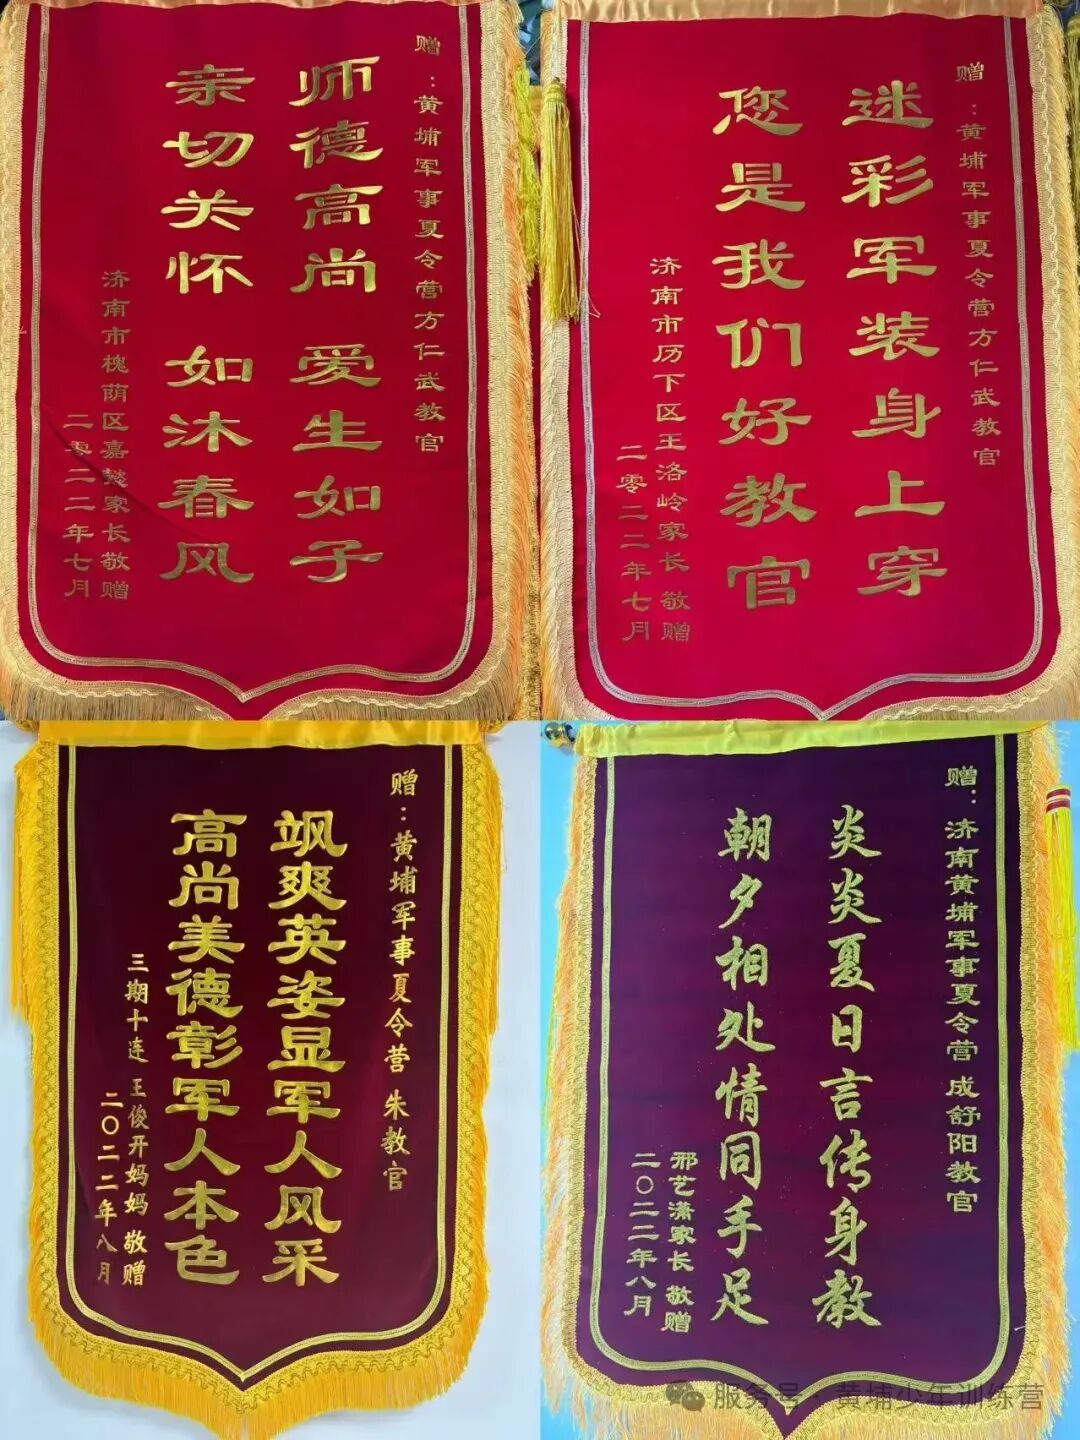 赠：黄埔军事夏令营方仁武教官
师德高尚 爱生如子
亲切关怀 如沐春风
济南市槐荫区嘉懿家长敬赠
二零二二年七月
赠：黄埔军事夏令营方仁武教官
迷彩军装身上穿
您是我们好教官
济南市历下区王洛岭家长敬赠
二零二二年七月
赠：黄埔军事夏令营 朱教官
飒爽英姿显军人风采
高尚美德彰军人本色
三期十连 王俊开妈妈 敬赠
二〇二二年八月
赠：济南黄埔军事夏令营 成舒阳教官
炎炎夏日言传身教
朝夕相处情同手足
邢艺潇家长 敬赠
二〇二二年八月
服务号·黄埔少年训练营